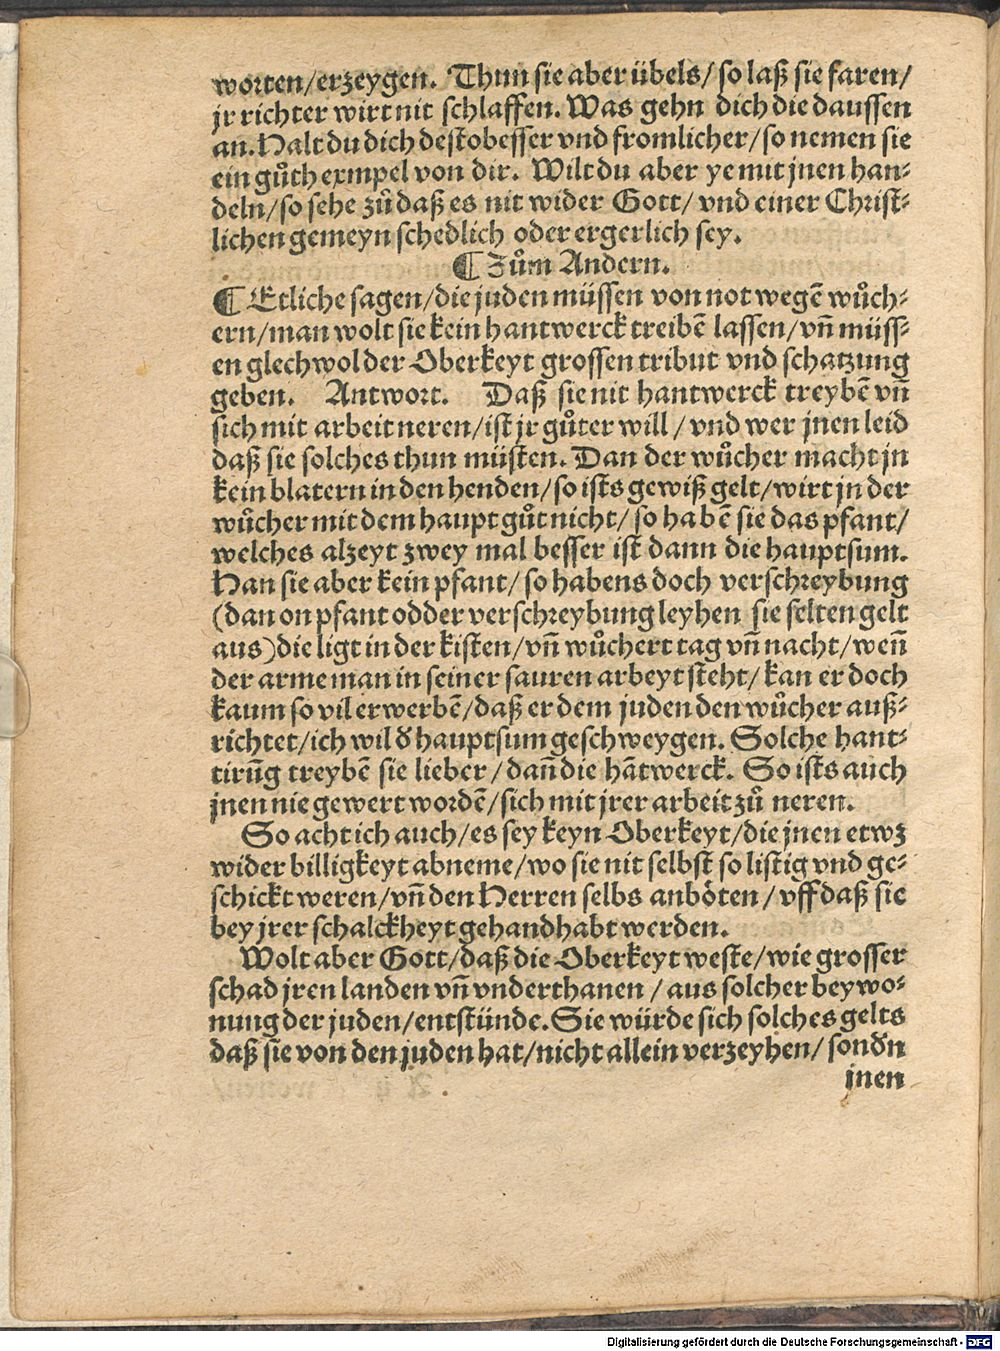 worten/erzeygen. Thun sie aber übels/ so laß sie faren/
jr richter wirt nit schlaffen. Was gehn dich die daussen
an. Halt du dich destobesser vnd fromlicher/ so nemen sie
ein gůth exmpel von dir. Wilt du aber ye mit jnen han⸗
deln/ so sehe zů daß es nit wider Gott/ vnd einer Christ⸗
lichen gemeyn schedlich oder ergerlich sey.
¶ Zům Andern.
¶ Etliche sagen/die juden müssen von not wegē wůch⸗
ern/man wolt sie kein hantwerck treibē lassen/vn̄ müss⸗
en glechwol der Oberkeyt grossen tribut vnd schatzung
geben. Antwort. Daß sie nit hantwerck treybē vn̄
sich mit arbeit neren/ist jr gůter will/ vnd wer jnen leid
daß sie solches thun müsten. Dan der wůcher macht jn
kein blatern in den henden/so ists gewiß gelt/wirt jn der
wůcher mit dem haupt gůt nicht/ so habē sie das pfant/
welches alzeyt zwey mal besser ist dann die hauptsum.
Han sie aber kein pfant/ so habens doch verschreybung
(dan on pfant odder verschreybung leyhen sie selten gelt
aus) die ligt in der kisten/vn̄ wůchert tag vn̄ nacht/ wen̄
der arme man in seiner sauren arbeyt steht/ kan er doch
kaum so vil erwerbē/daß er dem juden den wůcher auß⸗
richtet/ich wil d̕ hauptsum geschweygen. Solche hant⸗
tirūg treybē sie lieber/ dan̄ die hātwerck. So ists auch
jnen nie gewert wordē/sich mit jrer arbeit zů neren.
So acht ich auch/es sey keyn Oberkeyt/die jnen etwz
wider billigkeyt abneme/wo sie nit selbst so listig vnd ge⸗
schickt weren/vn̄ den Herren selbs anböten/ vff daß sie
bey jrer schalckheyt gehandhabt werden.
Wolt aber Gott/daß die Oberkeyt weste/wie grosser
schad jren landen vn̄ vnderthanen/ aus solcher beywo⸗
nung der juden/entstünde. Sie würde sich solches gelts
daß sie von den juden hat/nicht allein verzeyhen/ sond̕n
jnen
Digitalisierung gefördert durch die Deutsche Forschungsgemeinschaft - DFG